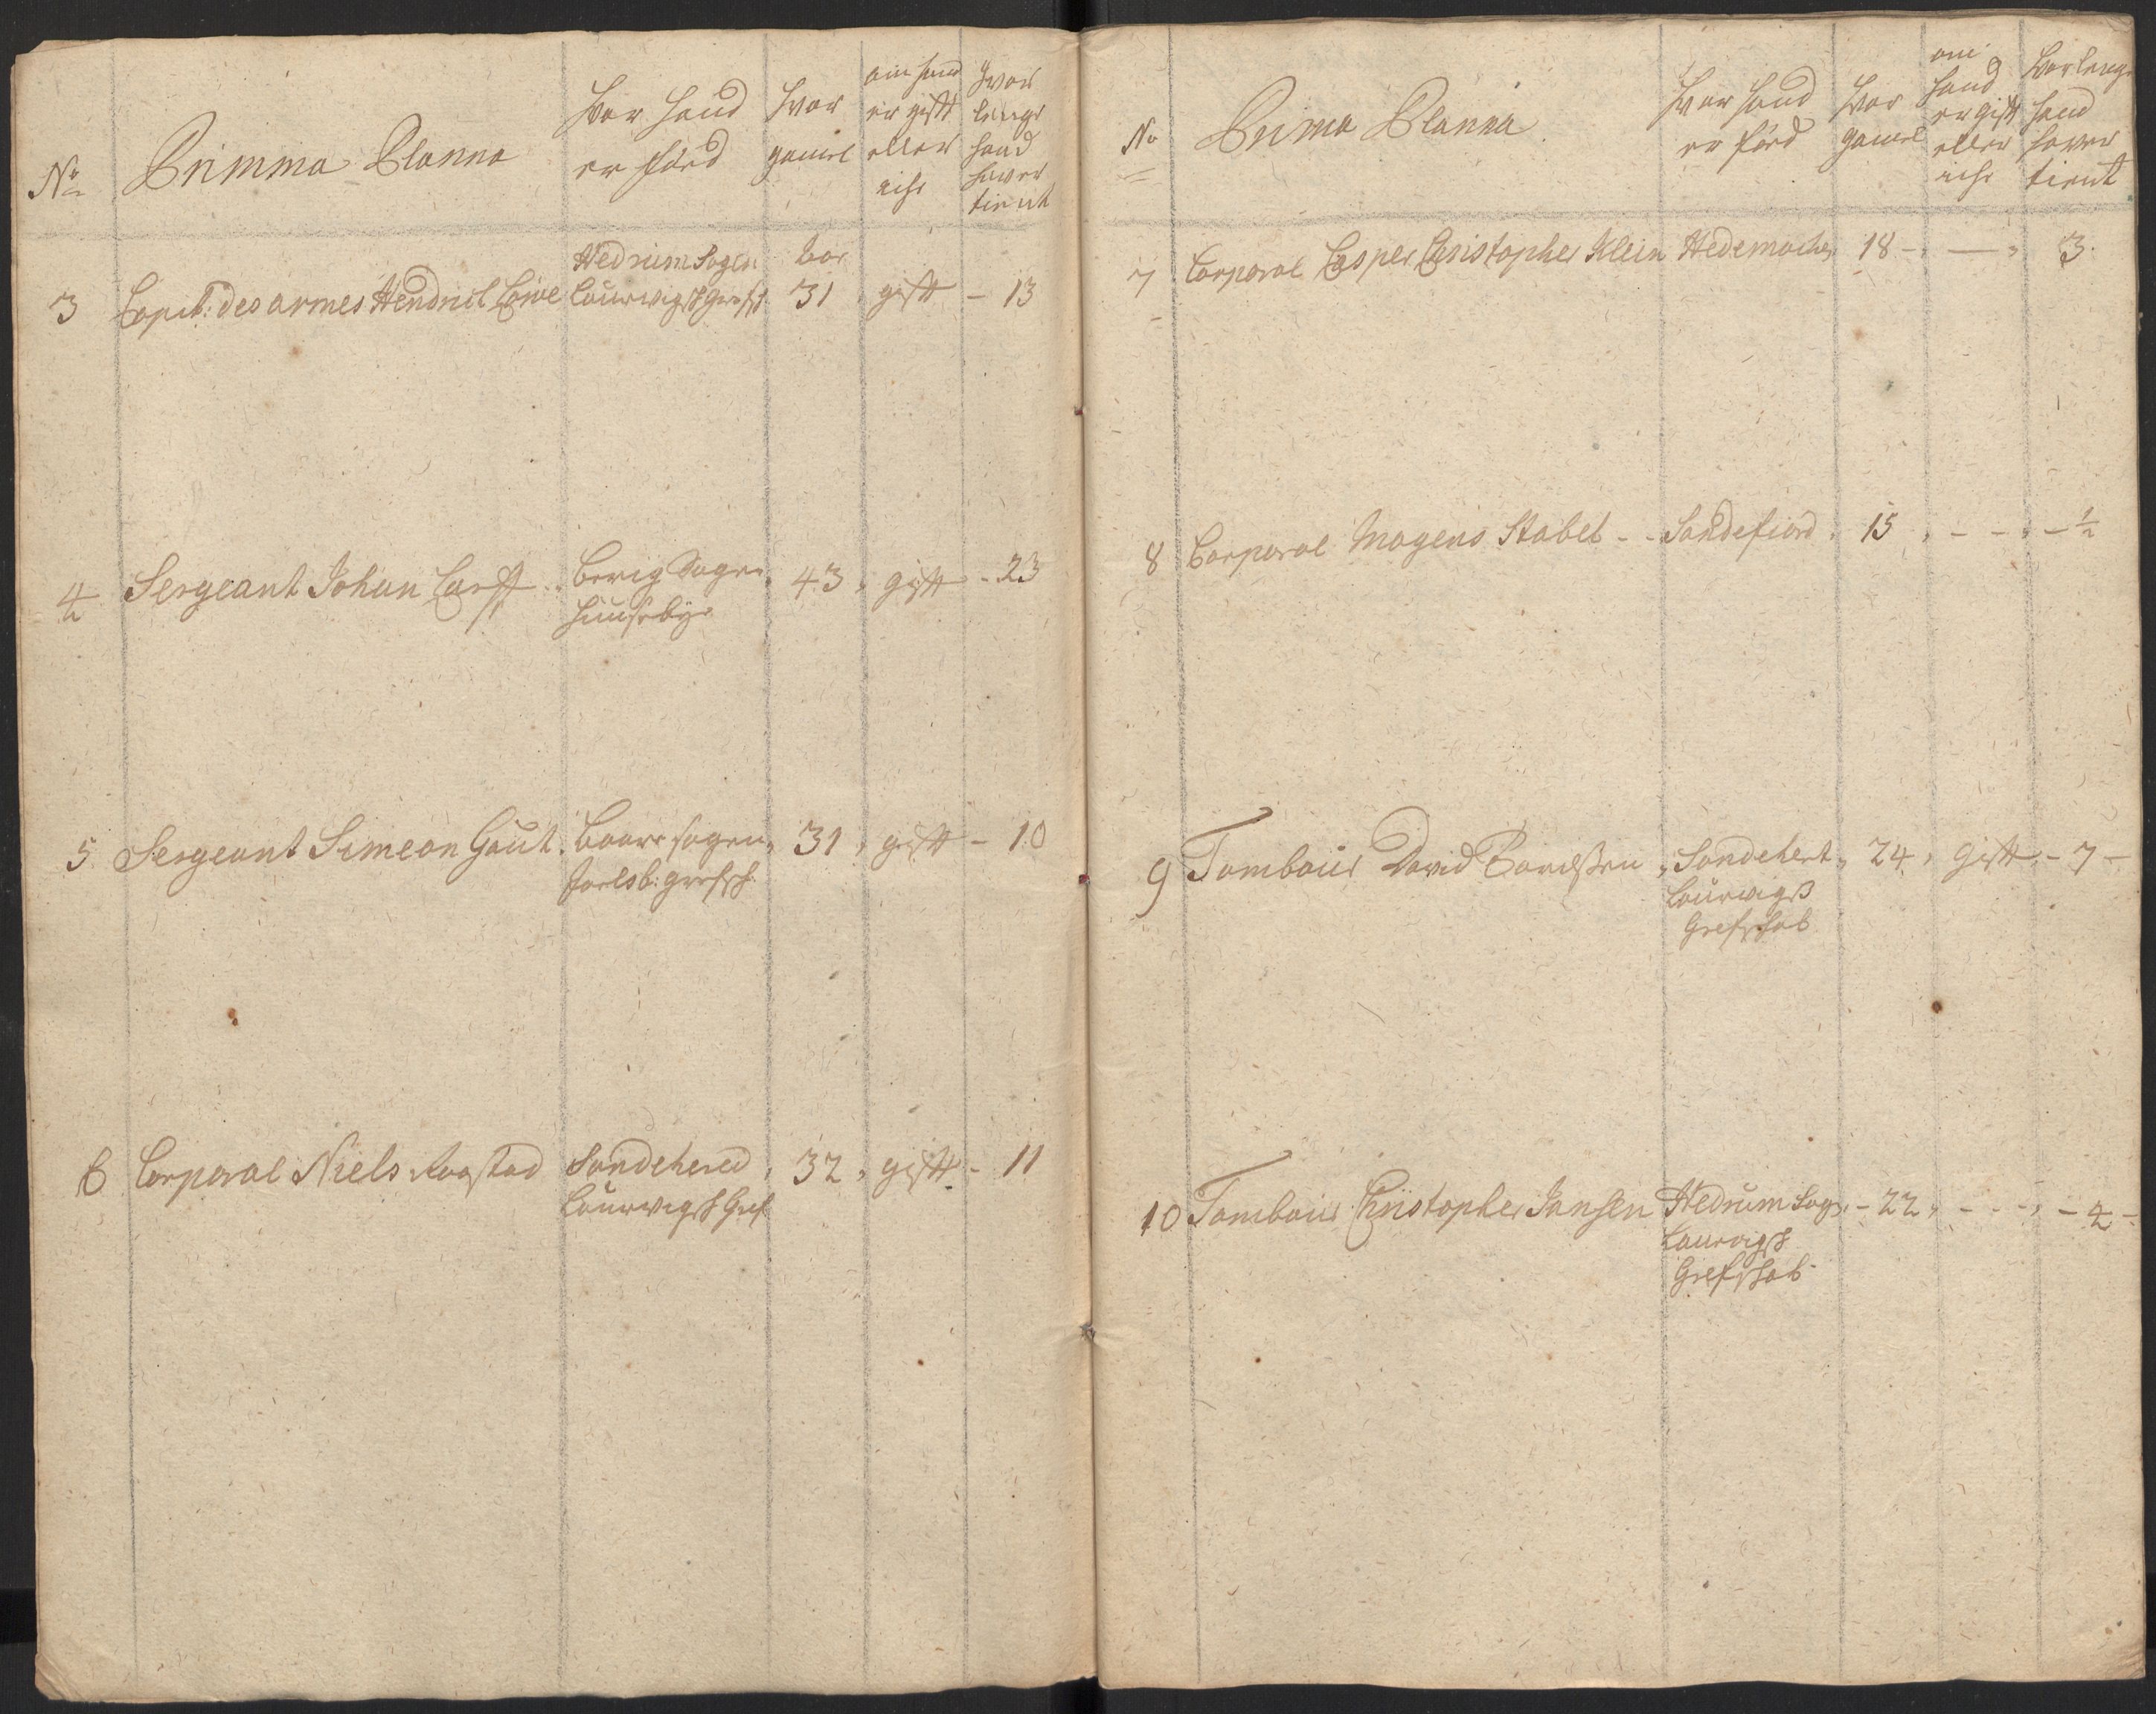 No
Primma Planna
Hvor hand
er född
Hvor
gamel
om hand
er gift
eller
eihr
Hvor
lenge
hand
haver
tient
3 Capit: des armes Hendrich
Hedrum Sogen
Laurvigs Grefs:
31 gift - 13
4 Sergeant Johan
Sogen
Huusebye
43 gift - 23
5 Sergeant Simeon Gaut
sogen
Jarlsb: grefsch
31 gift - 10
6 Corporal Niels
Sandeherred
Laurvigs Gref
32 gift - 11
No
Prima Planna
Hvor hand
er född
Hvor
gamel
om
hand
er gift
eller
eihr
Hvorlenge
hand
haver
tient
7 Corporal Casper Christopher Klein Hedemarchen 18 - — 3.
8 Corporal Mogens Stabel - - Sandefiord 15 - - - ½
9 Tambour David Sandehert 24 Gift - 7 -
Laurvigs
Grefschab
10 Tambour Christopher Jansen Hedrum Sogn - 22 - - - - 4 -
Laurvigs
Grefschab